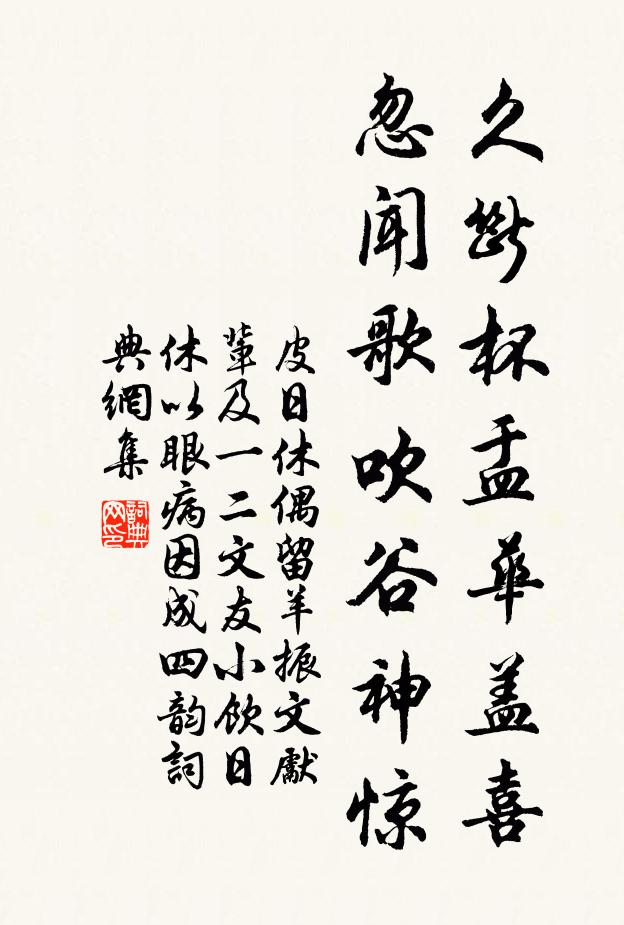 久斷杯盂華盖喜
忽聞歌吹谷神惊
皮日休偶留羊振文獻
輩及一二文友小飲日
休以眼病因成四韵詞
典網集
詞典网印